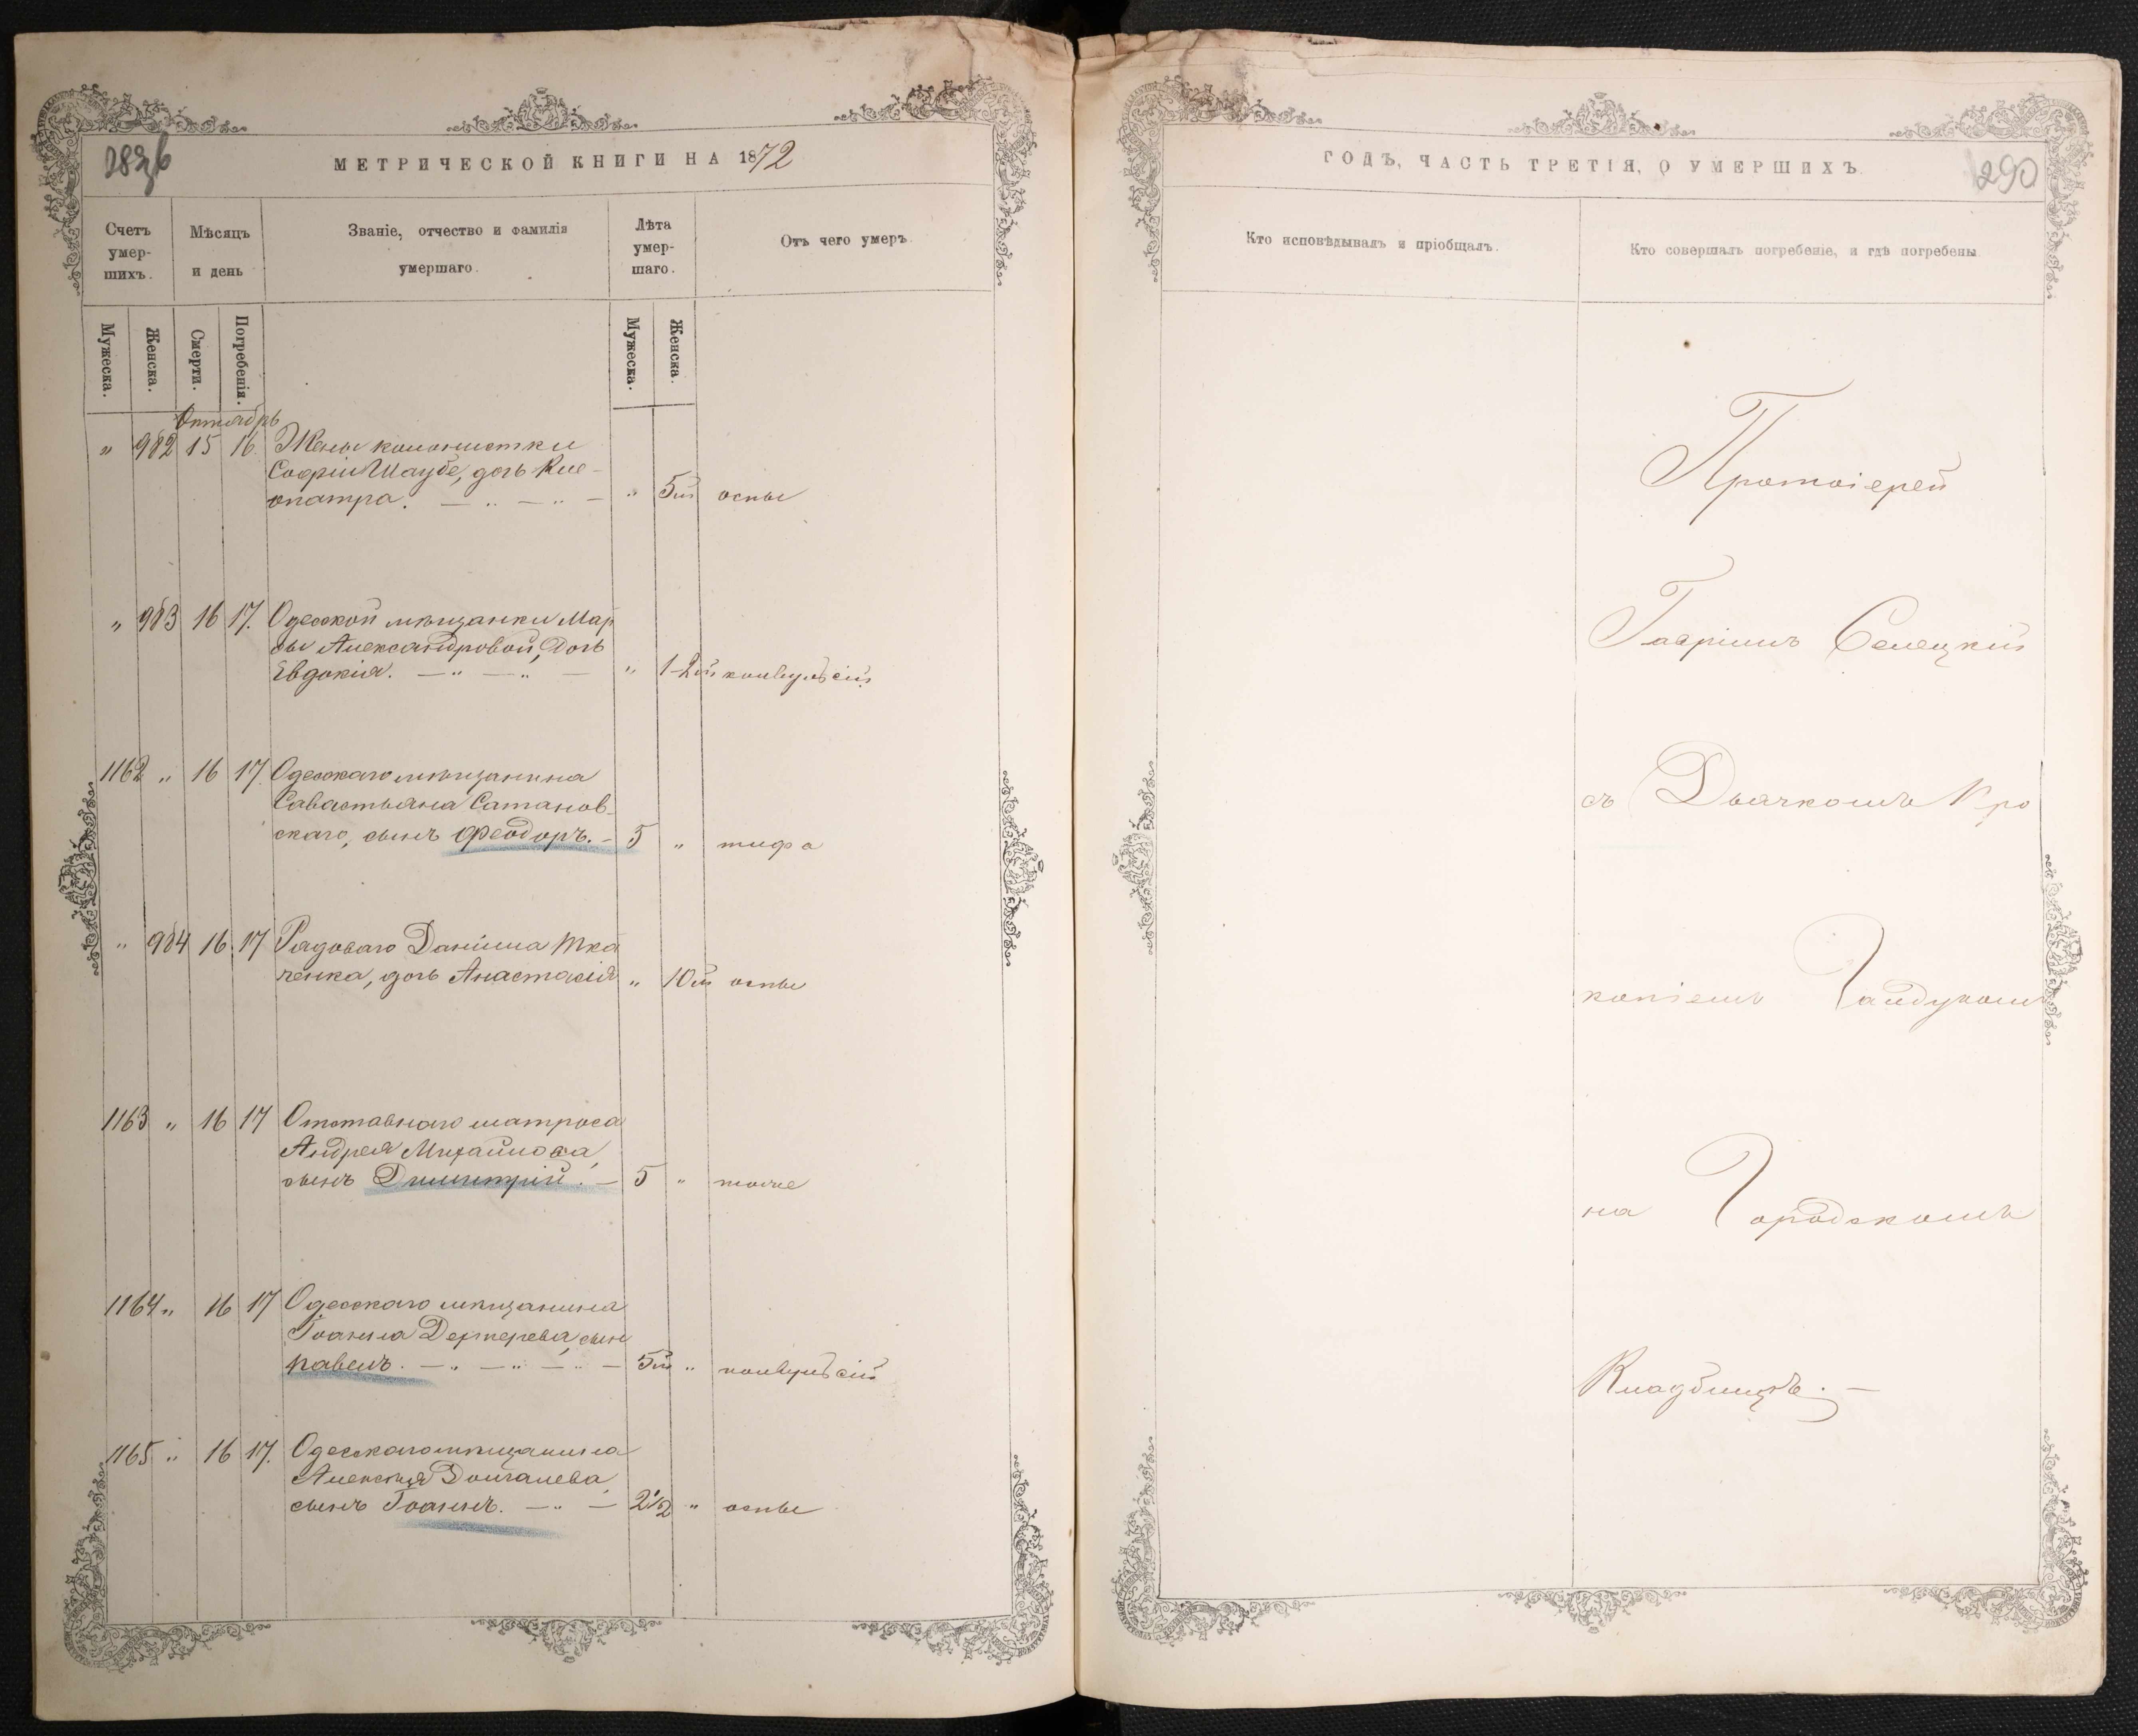 МЕТРИЧЕСКОЙ КНИГИ НА 1872
Счетъ умер-шихъ.
Мѣсяцъ и день
Званіе, отчество и фамилія умершаго.
Лѣта умер-шаго.
Отъ чего умеръ.
Мужеска.
Женска.
Смерти.
Погребенія.
Мужеска.
Женска.
Октябрь
" 982 15 16. Жены колонистки
Софіи Шаубе, дочь Кле-
опатра. — " — " — " 5м оспы
" 983 16 17. Одесской мѣщанки Мар
ѳы Александровой, дочь
Евдокія. — " — " — " 1-2м конвульсій
1162 " 16 17. Одесскаго мѣщанина
Савастьяна Сатанов-
скаго, сынъ Феодоръ. — 5 " тифа
" 984 16 17 Рядоваго Даніила Тка
ченка, дочь Анастасія " 10м оспы
1163 " 16 17 Отставнаго матроса
Андрея Михайлова,
сынъ Димитрій. — 5 " тоже
1164 " 16 17 Одесскаго мѣщанина
Іоанна сынъ
Павелъ. — " — " — " — 5м " конвульсій
1165 " 16 17. Одесскаго мѣщанина
Алексѣя
сынъ Іоаннъ. — " — 2 1/2 " оспы
ГОДЪ, ЧАСТЬ ТРЕТІЯ, О УМЕРШИХЪ
290
Кто исповѣдывалъ и пріобщалъ.
Кто совершалъ погребеніе, и гдѣ погребены
Протоіерей
Гавріилъ Селецкій
съ Дьячкомъ Про
копіемъ Гайдукомъ
на Городскомъ
Кладбищѣ. —